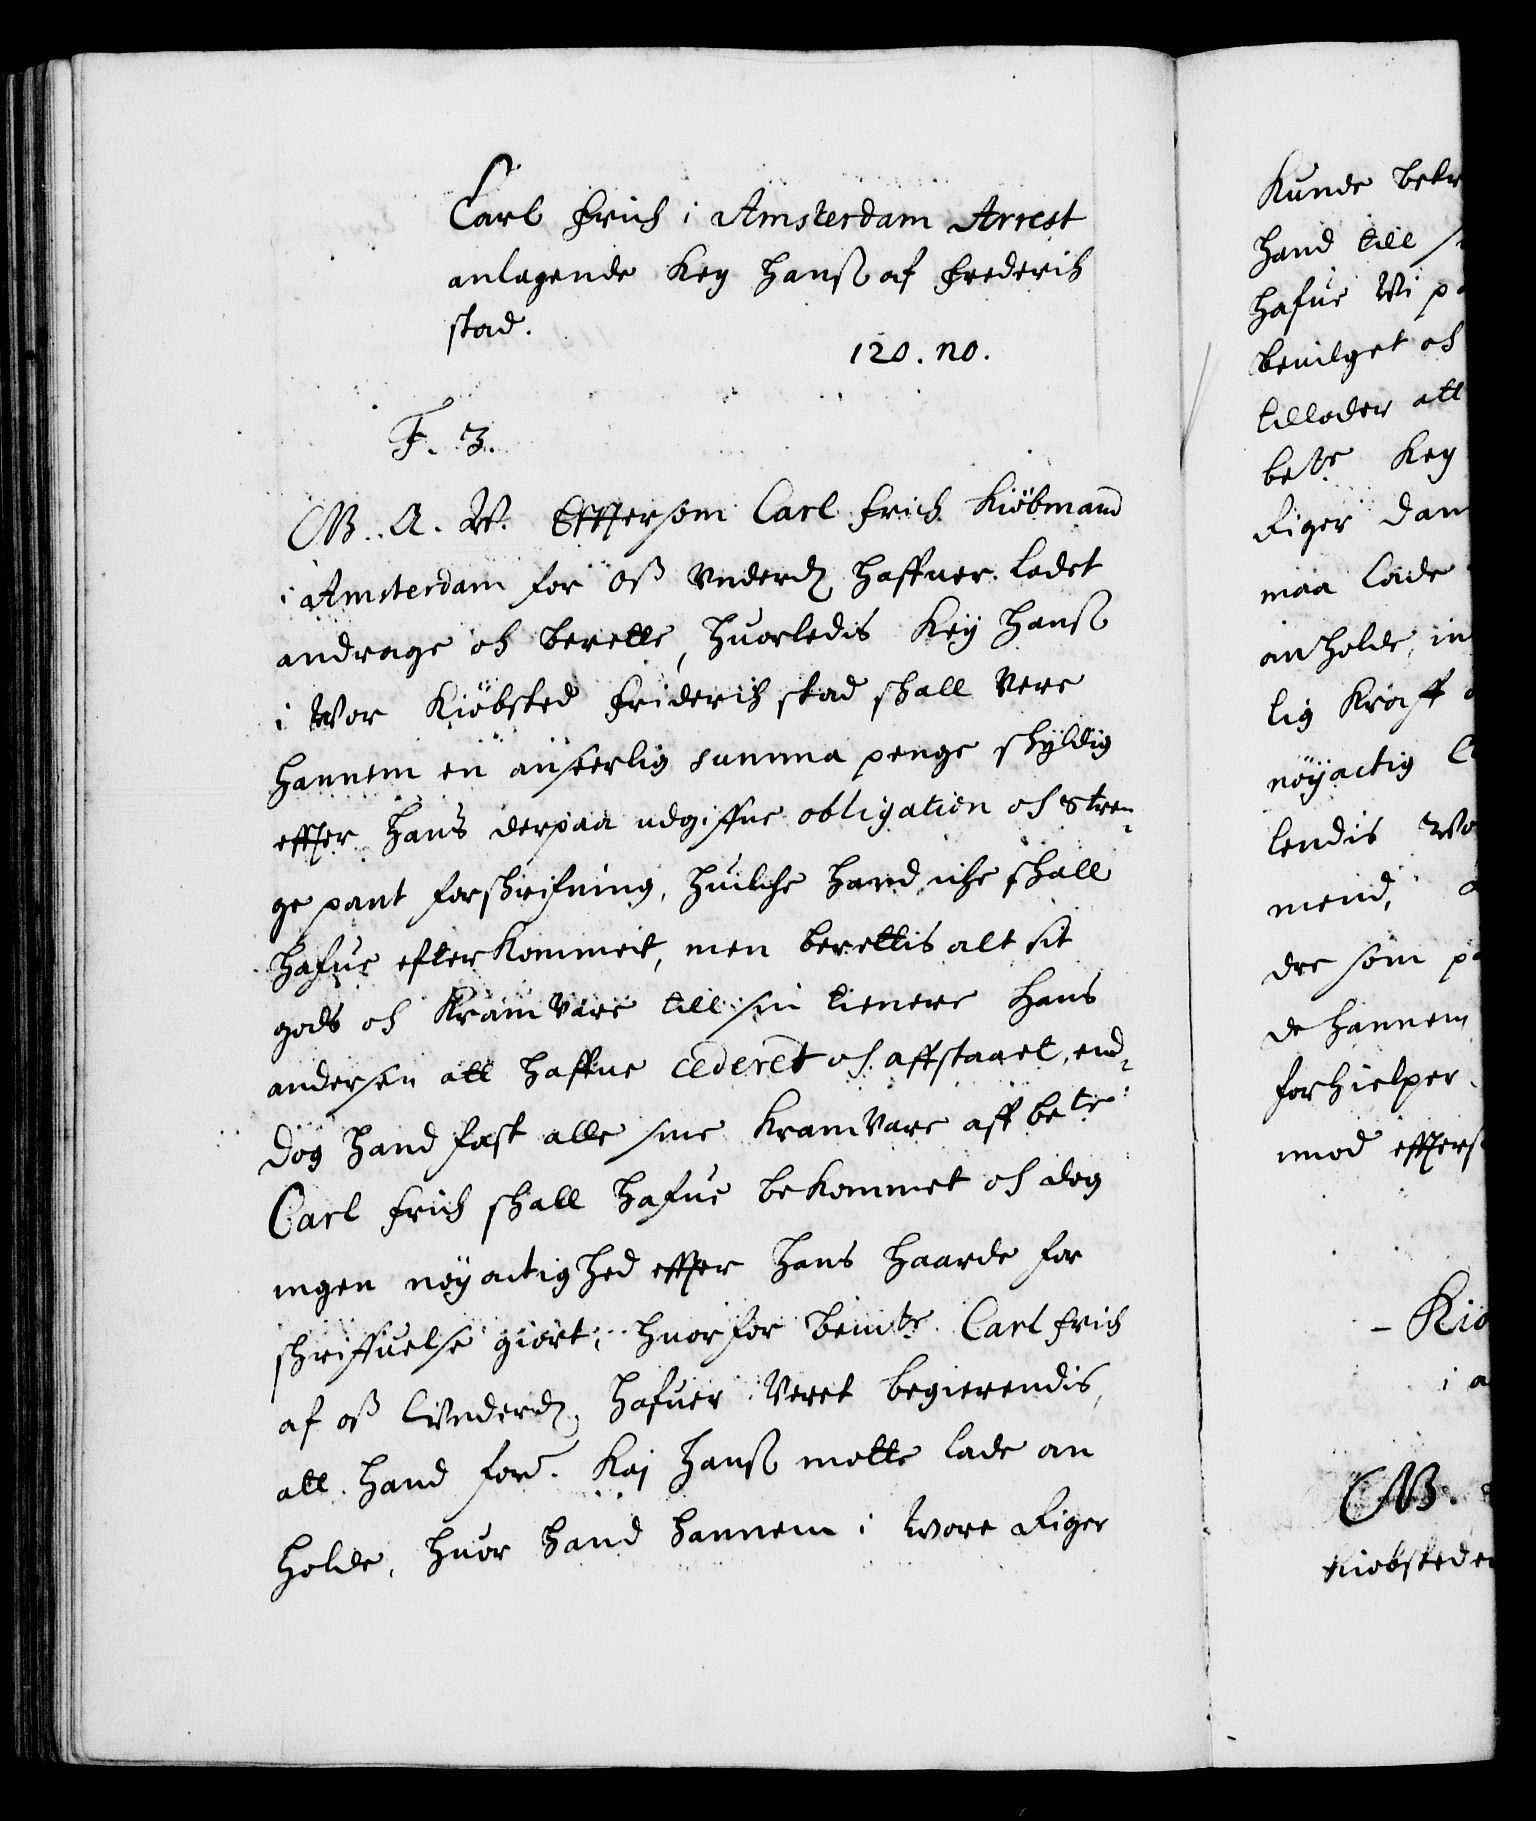 Carl Frich i Amsterdam Arrest
anlagende Key Hanß af Frederich
stad.
120. no.
F. 3.
G. A. W. Effersom Carl Frich Kiöbmand
i Amsterdam for oß underd haffuer ladet
andrage och berette, huorledis Keÿ Hanß
i Wor Kiöbsted Friderich stad shall Vere
hannem en anseerlig summa penge shÿldig
effter hans derpaa udgiffue obligation och stren-
ge pant forshrifning, huilche hand iche shall
hafue efterkommeit, men berettis alt sit
gods och KramVare till sin tienere Hans
andersen att haffue cederet och affstaaet, end-
dog hand fast alle sine KramVare aff bete
Carl Frich shall hafue bekommet och dog
ingen nøyactighed effter hans haarde for
shriffuelse giört, huorfor bemte Carl Frich
af oß Vnderd hafuer Veret begierendis,
att hand for. Kaj Hanß motte lade an
holde, huor hand hannem i Wore Riger
Kunde betr
hand till s
hafue Wi p
beuilget och
tillader att
bete Key
Riger Dan
maa lade
anholde, in
lig Krafft
nöÿactig
lendis Wo
mend,
dre som p
de hannem
forhielper
imod effters
- Kiø
i a
G.
Kiøbsteder